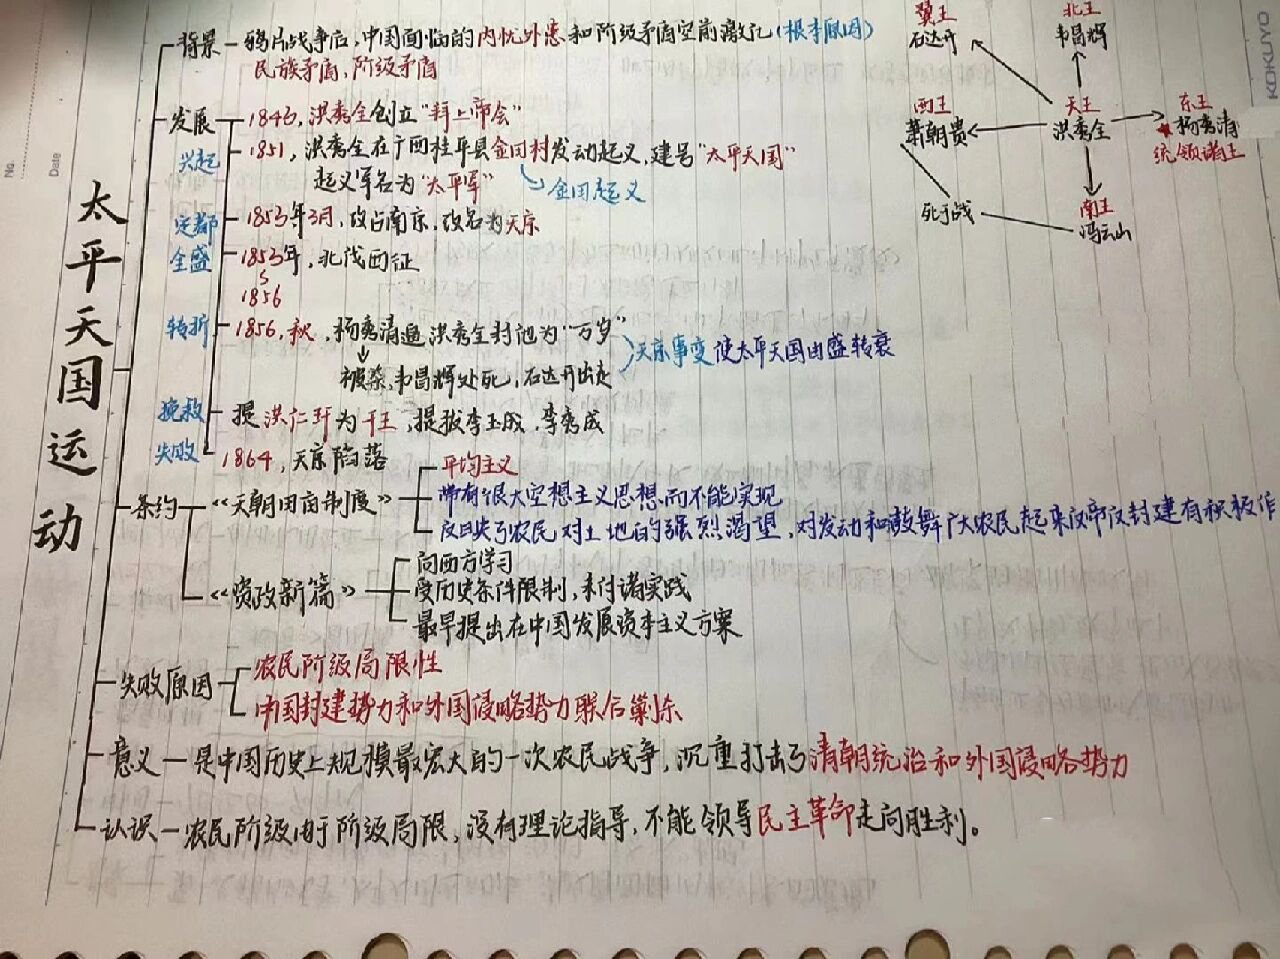 KOKUYO
No.
Date
太平天国运动
背景 - 鸦片战争后，中国面临的内忧外患和阶级矛盾空前激化（根本原因）
民族矛盾，阶级矛盾
发展
兴起
1843，洪秀全创立“拜上帝会”
1851，洪秀全在广西桂平县金田村发动起义，建号“太平天国”
起义军名为“太平军”
金田起义
定都
1853年3月，攻占南京，改名为天京
全盛
1853年，北伐西征
1856
转折
1856，秋，杨秀清逼洪秀全封他为“万岁”
被杀，韦昌辉处死，石达开出走
天京事变使太平天国由盛转衰
挽救
提洪仁玕为干王，提拔李玉成，李秀成
失败
1864，天京陷落
条约
《天朝田亩制度》
平均主义
带有很大空想主义思想而不能实现
反映了农民对土地的强烈渴望，对发动和鼓舞广大农民起来反帝反封建有积极作
《资政新篇》
向西方学习
受历史条件限制，未付诸实践
最早提出在中国发展资本主义方案
失败原因
农民阶级局限性
中国封建势力和外国侵略势力联合剿杀
意义 - 是中国历史上规模最宏大的一次农民战争，沉重打击了清朝统治和外国侵略势力
认识 - 农民阶级由于阶级局限，没有理论指导，不能领导民主革命走向胜利。
翼王
石达开
北王
韦昌辉
西王
萧朝贵
天王
洪秀全
东王
杨秀清
统领诸王
死于战
南王
冯云山